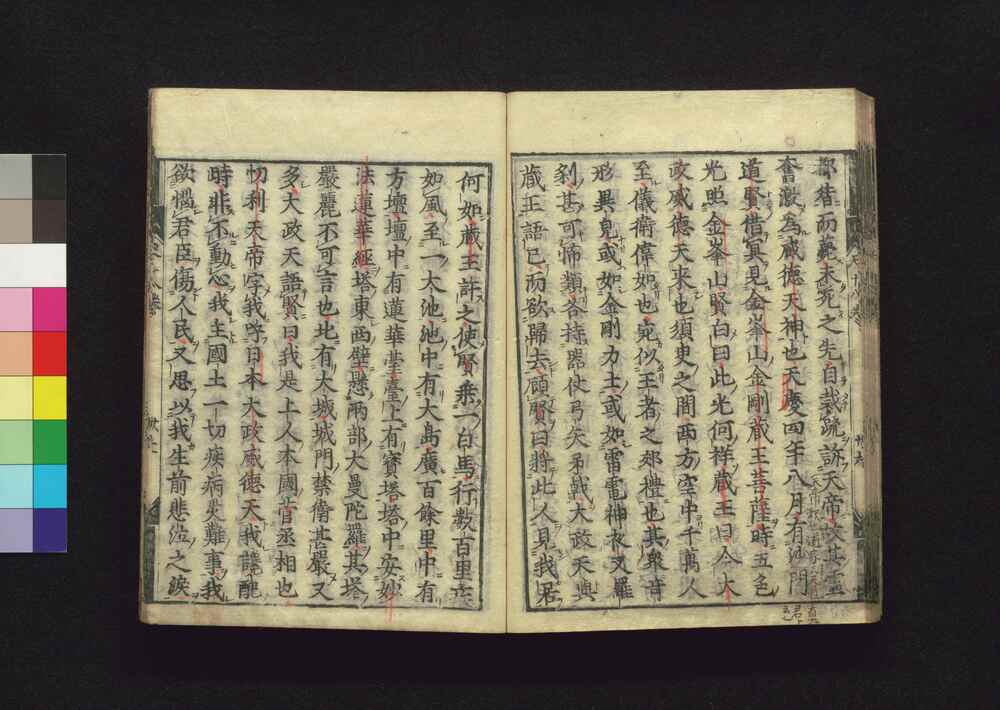 都督而薨未死之先自裁疏訴天帝故其靈
奮激為威德天神也天慶四年八月有沙門
道賢猶冥見金峯山金剛藏王菩薩時五色
光照金峯山賢白曰此光何祥藏王曰今大
政威德天來也須臾之間西方空中千萬人
至儀衛偉如也宛似王者之郊禮也其衆奇
形異皃或如金剛力士或如雷電神夜叉羅
刹甚可怖類各持器仗弓矢矛戟大政天與
藏王語已而欲歸去顧賢曰將此人見我居
何如藏王許之使賢乘一白馬行數百里疾
如風至一大池池中有大島廣百餘里中有
方壇壇中有蓮華臺臺上有寶塔塔中安妙
法蓮華經塔東西壁懸兩部大曼陀羅其塔
嚴麗不可言也北有大城城門禁衛甚嚴又
多大政天語賢曰我是上人本國菅丞相也
忉利天帝字我號日本大政威德天我讎配
時非不動心我主國土一切疾病災難事我
欲惱君臣傷人民又思以我生前悲泣之淚